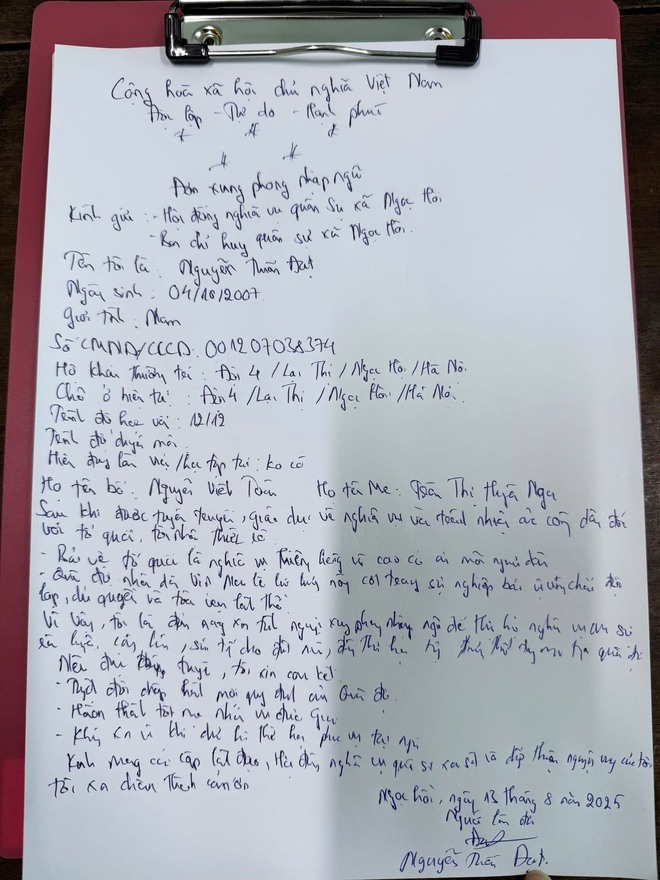 Cộng hoà xã hội chủ nghĩa Việt Nam
Độc lập - Tự do - Hạnh phúc
Đơn xung phong nhập ngũ
Kính gửi : - Hội đồng nghĩa vụ quân sự xã Ngọc Hồi
- Ban chỉ huy quân sự xã Ngọc Hồi.
Tên tôi là : Nguyễn Đạt
Ngày sinh : 04/10/2007
Giới tính : Nam
Số CMND/CCCD : 001207038374
Hộ khẩu thường trú : 4 / Lạc Thị / Ngọc Hồi / Hà Nội.
Chỗ ở hiện tại : 4 / Lạc Thị / Ngọc Hồi / Hà Nội.
Trình độ học vấn : 12/12
Trình độ chuyên môn
Hiện đang làm việc /học tập tại : ko có
Họ tên bố : Nguyễn Viết Toán Họ tên Mẹ : Trần Thị Nga
Sau khi được tuyên truyền, giáo dục về nghĩa vụ và trách nhiệm của công dân đối
với tổ quốc, tôi nhận thức rõ
- Bảo vệ tổ quốc là nghĩa vụ thiêng liêng và cao cả của mỗi người dân
- Quân đội nhân dân Việt Nam là lực lượng trong sự nghiệp bảo vệ độc
lập, chủ quyền và toàn vẹn lãnh thổ
Vì vậy, tôi làm đơn này xin tình nguyện xung phong nhập ngũ để thực hiện nghĩa vụ quân sự
Nếu được duyệt, tôi xin cam kết
- Tuyệt đối chấp hành mọi quy định của Quân đội.
- Hoàn thành tốt mọi nhiệm vụ được giao
- Không xin về khi chưa hết thời hạn phục vụ tại ngũ
Kính mong các cấp lãnh đạo, Hội đồng nghĩa vụ quân sự xem xét và chấp thuận nguyện vọng của tôi
Tôi xin chân thành cảm ơn
Ngọc hồi, ngày 13 tháng 8 năm 2025
Người làm đơn
Đạt
Nguyễn Đạt.